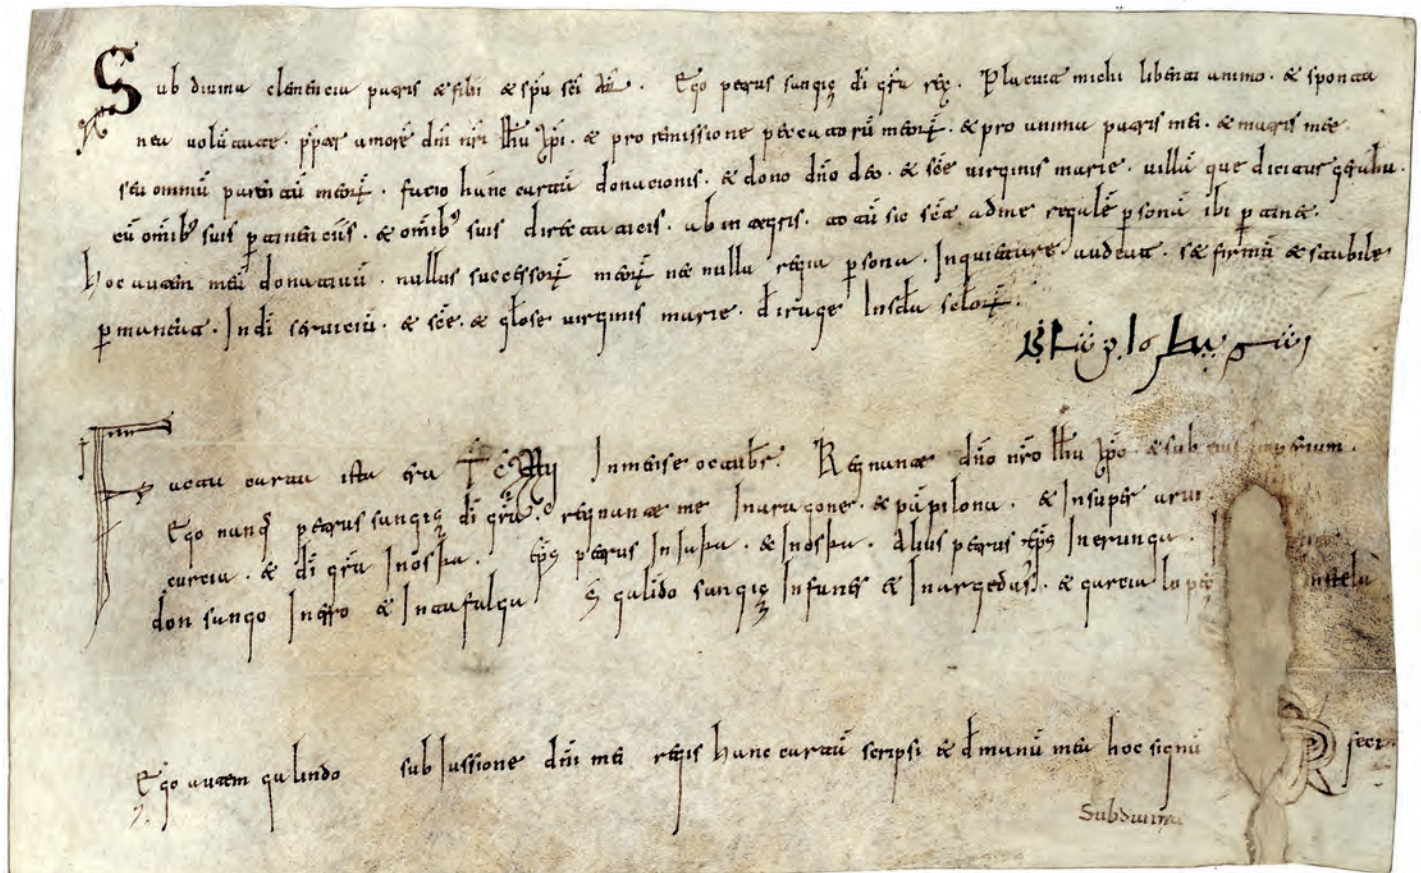 Sub diuina clementia patris & filii & spū sc̄i am̄. Ego petrus sangiȩ di ḡra rex. Placuit michi libenti animo. & sponta
nea uolūtate. ꝓpter amorē dn̄i nr̄i ihū xp̄i. & pro remissione peccatorū meorꝝ. & pro anima patris mei. & matris mee.
seu omniū parentū meorꝝ. facio hanc cartā donacionis. & dono dn̄o deo. & sc̄e uirginis marie. uillā que dicitur
cū om̄ib; suis ꝑtinenciis. & om̄ib; suis directaticis. ab integris. totū sic sc̄e ad me regalē ꝑsonā ibi ꝑtinet.
hoc autem meū donatiuū. nullus successorꝝ meorꝝ nec nulla regia ꝑsona. Inquietare audeat. s& firmū & stabile
ꝑmaneat. In di seruiciū. & sc̄e. & gl̄ose uirginis marie. In scl̄a scl̄orꝝ.
Facta carta ista era In mense octub̄r. Regnante dn̄o nr̄o ihū xp̄o & sub eius imperium.
Ego nanq̄ petrus sangiȩ di ḡra. regnante me In aragone. & pāpilona. & In super arui
curcia. & di ḡra In oska. ep̄s petrus In iaka. & In oska. Alius petrus ep̄s In erunga.
don sango In erro & In tafalga S galīdo sangiȩ In funes & In argedas. & garcia lopeȩ In stela
Ego autem galindo sub Iussione dn̄i mei regis hanc cartā scripsi & d̄ manū mea hoc signū feci
Sub diuina